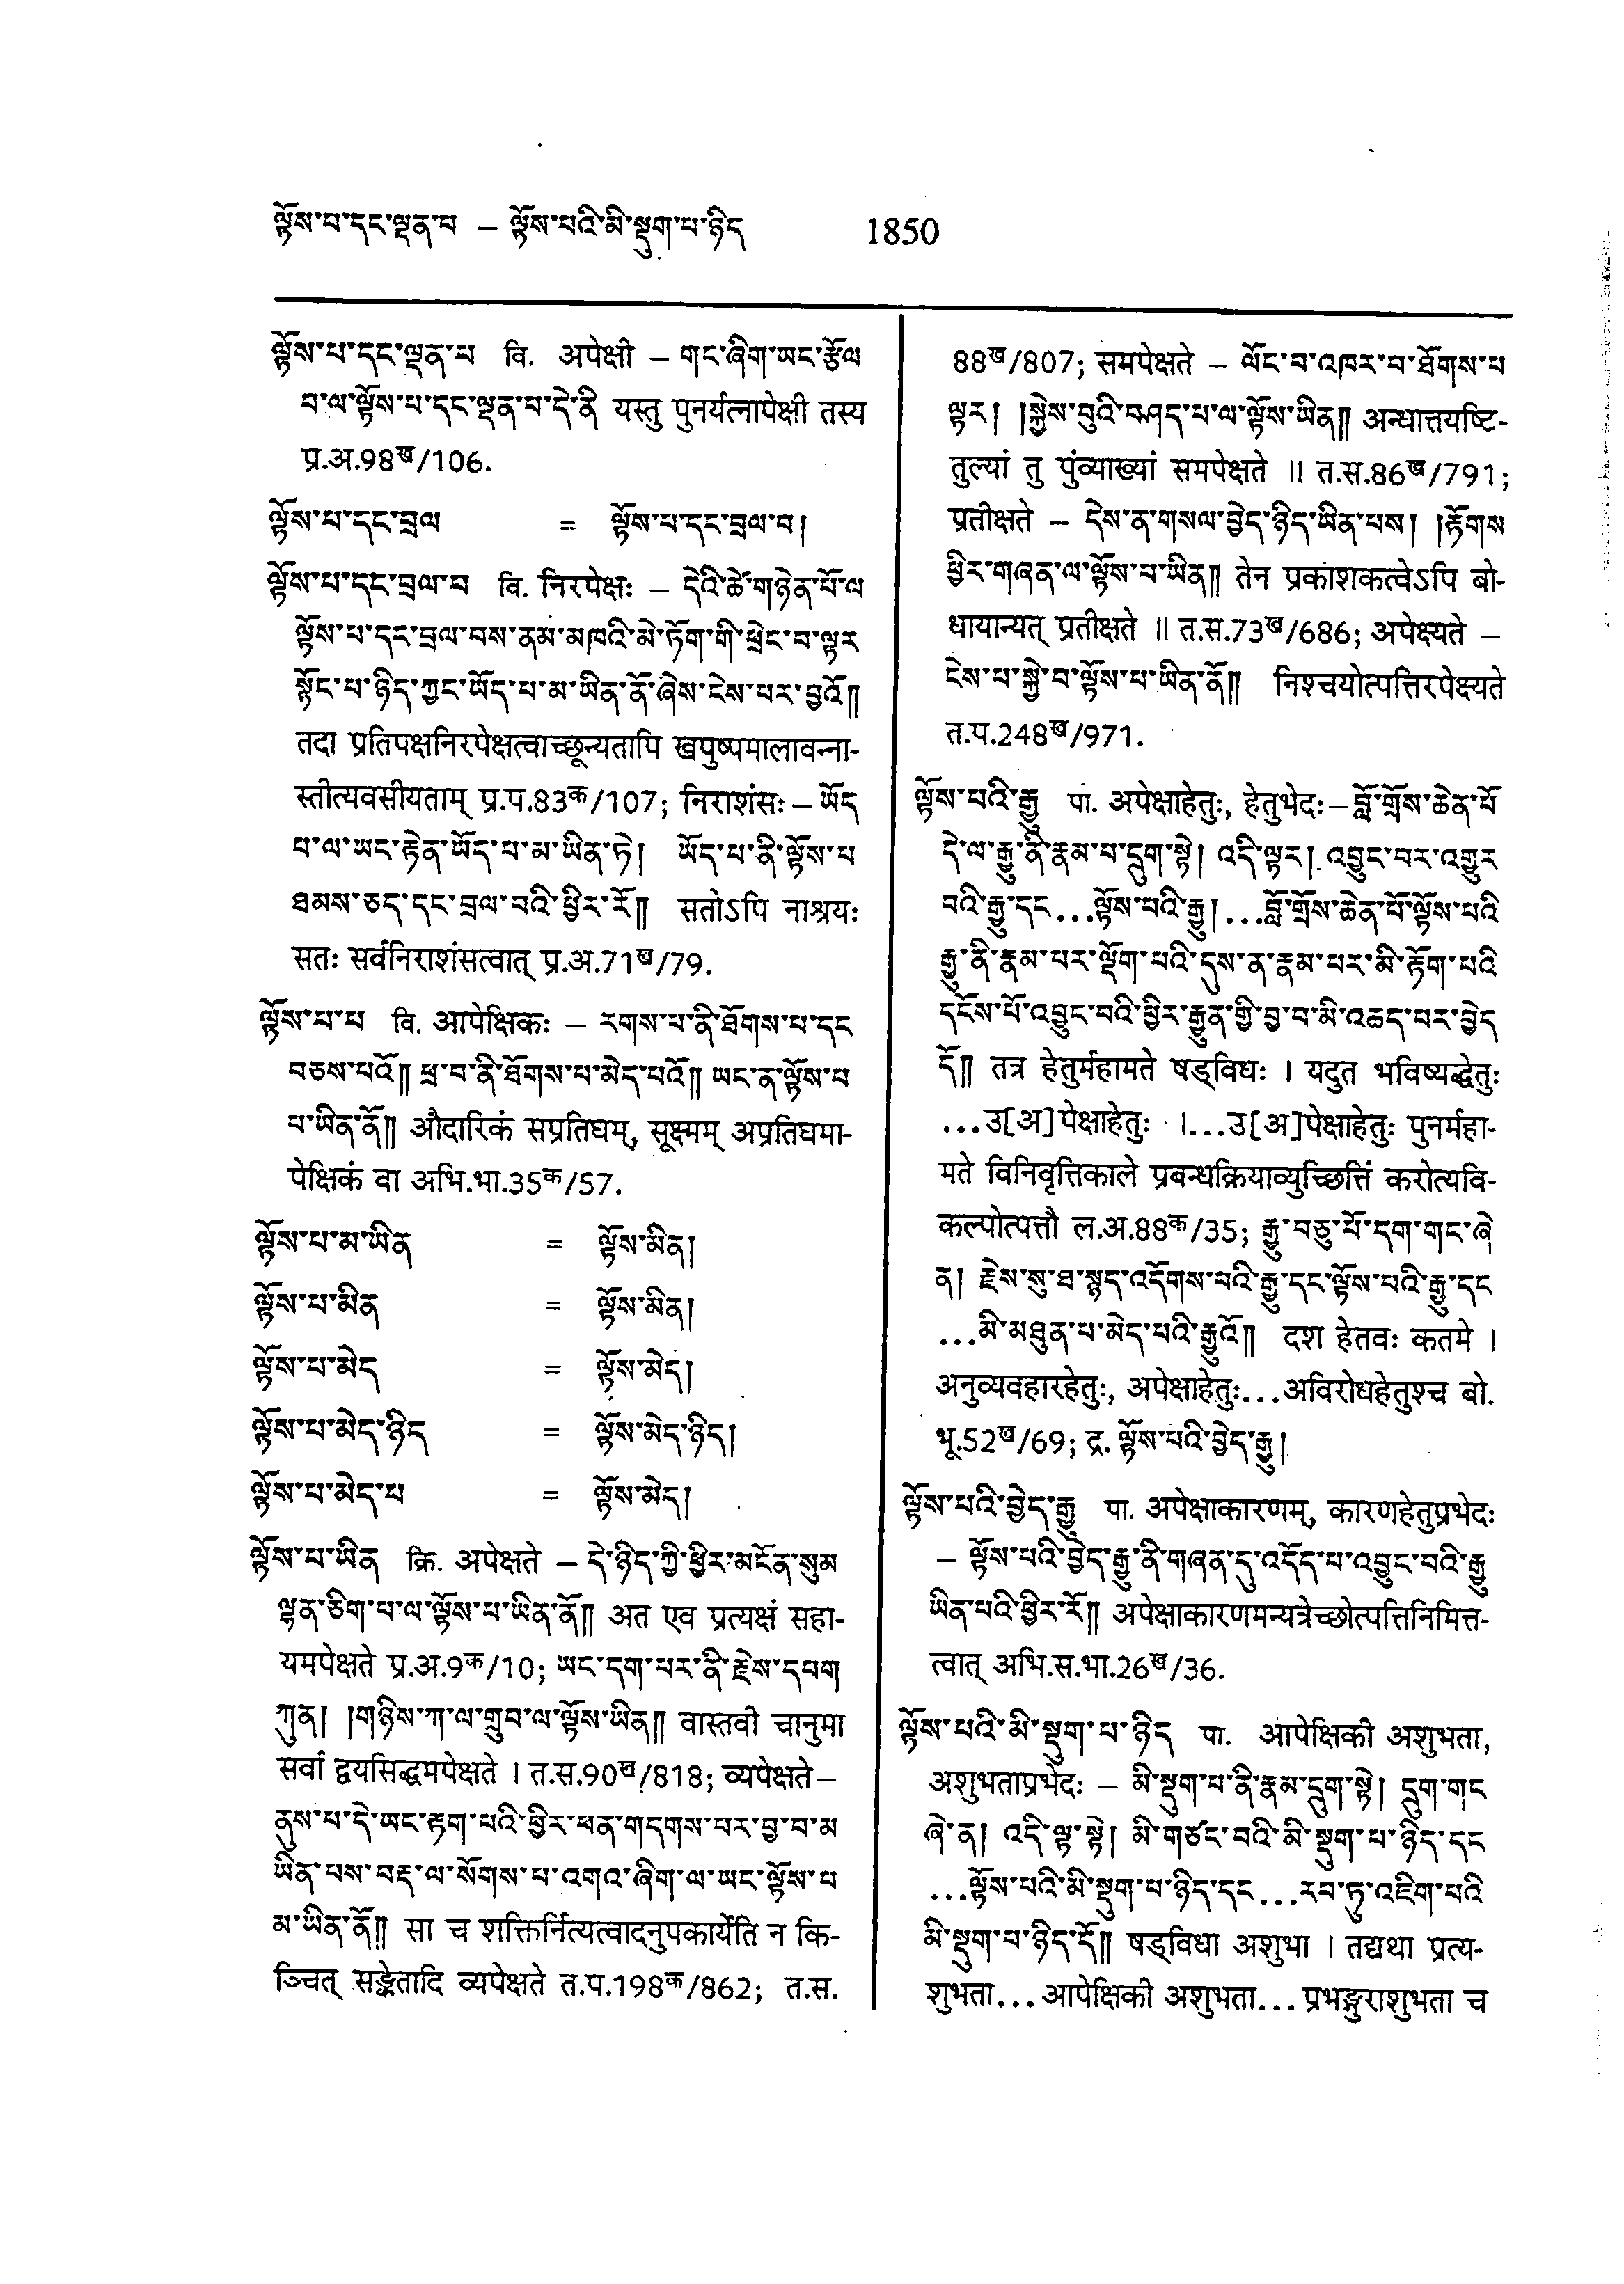 ལྟོས་པ་དང་ལྡན་པ – ལྟོས་པའི་མི་སྡུག་པ་ཉིད 1850
ལྟོས་པ་དང་ལྡན་པ वि. अपेक्षी – གང་ཞིག་ཡང་རྩོལ
བ་ལ་ལྟོས་པ་དང་ལྡན་པ་དེ་ནི यस्तु पुनर्यत्नापेक्षी तस्य
प्र.अ.98ख/106.
ལྟོས་པ་དང་བྲལ = ལྟོས་པ་དང་བྲལ་བ།
ལྟོས་པ་དང་བྲལ་བ वि. निरपेक्षः – དེའི་ཚེ་གཉེན་པོ་ལ
ལྟོས་པ་དང་བྲལ་བས་ནམ་མཁའི་མེ་ཏོག་གི་ཕྲེང་བ་ལྟར
སྟོང་པ་ཉིད་ཀྱང་ཡོད་པ་མ་ཡིན་ནོ་ཞེས་ངེས་པར་བྱའོ༎
तदा प्रतिपक्षनिरपेक्षत्वाच्छून्यतापि खपुष्पमालावन्ना-
स्तीत्यवसीयताम् प्र.प.83क/107; निराशंसः – ཡོད
པ་ལ་ཡང་རྟེན་ཡོད་པ་མ་ཡིན་ཏེ། ཡོད་པ་ནི་ལྟོས་པ
ཐམས་ཅད་དང་བྲལ་བའི་ཕྱིར་རོ༎ सतोऽपि नाश्रयः
सतः सर्वनिराशंसत्वात् प्र.अ.71ख/79.
ལྟོས་པ་པ वि. आपेक्षिकः – རགས་པ་ནི་ཐོགས་པ་དང
བཅས་པའོ༎ ཕྲ་བ་ནི་ཐོགས་པ་མེད་པའོ༎ ཡང་ན་ལྟོས་པ
པ་ཡིན་ནོ༎ औदारिकं सप्रतिघम्, सूक्ष्मम् अप्रतिघमा-
पेक्षिकं वा अभि.भा.35क/57.
ལྟོས་པ་མ་ཡིན = ལྟོས་མིན།
ལྟོས་པ་མིན = ལྟོས་མིན།
ལྟོས་པ་མེད = ལྟོས་མེད།
ལྟོས་པ་མེད་ཉིད = ལྟོས་མེད་ཉིད།
ལྟོས་པ་མེད་པ = ལྟོས་མེད།
ལྟོས་པ་ཡིན क्रि. अपेक्षते – དེ་ཉིད་ཀྱི་ཕྱིར་མངོན་སུམ
ལྷན་ཅིག་པ་ལ་ལྟོས་པ་ཡིན་ནོ༎ अत एव प्रत्यक्षं सहा-
यमपेक्षते प्र.अ.9क/10; ཡང་དག་པར་ནི་རྗེས་དཔག
ཀུན། །གཉིས་ཀ་ལ་གྲུབ་ལ་ལྟོས་ཡིན༎ वास्तवी चानुमा
सर्वा द्वयसिद्धमपेक्षते । त.स.90ख/818; व्यपेक्षते –
ནུས་པ་དེ་ཡང་རྟག་པའི་ཕྱིར་ཕན་གདགས་པར་བྱ་བ་མ
ཡིན་པས་བརྡ་ལ་སོགས་པ་འགའ་ཞིག་ལ་ཡང་ལྟོས་པ
མ་ཡིན་ནོ༎ सा च शक्तिर्नित्यत्वादनुपकार्येति न कि-
ञ्चित् सङ्केतादि व्यपेक्षते त.प.198क/862; त.स.
88ख/807; समपेक्षते – ལོང་བ་འཁར་བ་ཐོགས་པ
ལྟར། །སྐྱེས་བུའི་བཤད་པ་ལ་ལྟོས་ཡིན༎ अन्धात्तयष्टि-
तुल्यां तु पुंव्याख्यां समपेक्षते ॥ त.स.86ख/791;
प्रतीक्षते – དེས་ན་གསལ་བྱེད་ཉིད་ཡིན་པས། །རྟོགས
ཕྱིར་གཞན་ལ་ལྟོས་པ་ཡིན༎ तेन प्रकाशकत्वेऽपि बो-
धायान्यत् प्रतीक्षते ॥ त.स.73ख/686; अपेक्ष्यते –
ངེས་པ་སྐྱེ་བ་ལྟོས་པ་ཡིན་ནོ༎ निश्चयोत्पत्तिरपेक्ष्यते
त.प.248ख/971.
ལྟོས་པའི་རྒྱུ पा. अपेक्षाहेतुः, हेतुभेदः – བློ་གྲོས་ཆེན་པོ
དེ་ལ་རྒྱུ་ནི་རྣམ་པ་དྲུག་སྟེ། འདི་ལྟར། འབྱུང་བར་འགྱུར
བའི་རྒྱུ་དང...ལྟོས་པའི་རྒྱུ།...བློ་གྲོས་ཆེན་པོ་ལྟོས་པའི
རྒྱུ་ནི་རྣམ་པར་ལྡོག་པའི་དུས་ན་རྣམ་པར་མི་རྟོག་པའི
དངོས་པོ་འབྱུང་བའི་ཕྱིར་རྒྱུན་གྱི་བྱ་བ་མི་འཆད་པར་བྱེད
དོ༎ तत्र हेतुर्महामते षड्विधः । यदुत भविष्यद्धेतुः
...उ[अ]पेक्षाहेतुः ।...उ[अ]पेक्षाहेतुः पुनर्महा-
मते विनिवृत्तिकाले प्रबन्धक्रियाव्युच्छित्तिं करोत्यवि-
कल्पोत्पत्तौ ल.अ.88क/35; རྒྱུ་བཅུ་པོ་དག་གང་ཞེ
ན། རྗེས་སུ་ཐ་སྙད་འདོགས་པའི་རྒྱུ་དང་ལྟོས་པའི་རྒྱུ་དང
...མི་མཐུན་པ་མེད་པའི་རྒྱུའོ༎ दश हेतवः कतमे ।
अनुव्यवहारहेतुः, अपेक्षाहेतुः...अविरोधहेतुश्च बो.
भू.52ख/69; द्र. ལྟོས་པའི་བྱེད་རྒྱུ།
ལྟོས་པའི་བྱེད་རྒྱུ पा. अपेक्षाकारणम्, कारणहेतुप्रभेदः
– ལྟོས་པའི་བྱེད་རྒྱུ་ནི་གཞན་དུ་འདོད་པ་འབྱུང་བའི་རྒྱུ
ཡིན་པའི་ཕྱིར་རོ༎ अपेक्षाकारणमन्यत्रेच्छोत्पत्तिनिमित्त-
त्वात् अभि.स.भा.26ख/36.
ལྟོས་པའི་མི་སྡུག་པ་ཉིད पा. आपेक्षिकी अशुभता,
अशुभताप्रभेदः – མི་སྡུག་པ་ནི་རྣམ་དྲུག་སྟེ། དྲུག་གང
ཞེ་ན། འདི་ལྟ་སྟེ། མི་གཙང་བའི་མི་སྡུག་པ་ཉིད་དང
...ལྟོས་པའི་མི་སྡུག་པ་ཉིད་དང...རབ་ཏུ་འཇིག་པའི
མི་སྡུག་པ་ཉིད་དོ༎ षड्विधा अशुभा । तद्यथा प्रत्य-
शुभता... आपेक्षिकी अशुभता... प्रभङ्गुराशुभता च